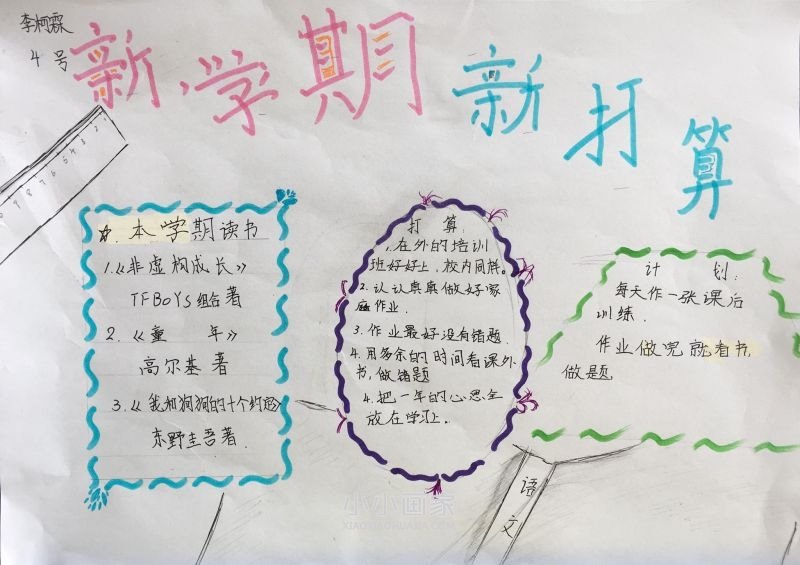 李柯霖
4号
新学期新打算
9 8 7 6 5 4 3 2
☆.本学期读书
1.《非虚构成长》
TFBOYS组合著
2.《童 年》
高尔基著
3.《我和狗狗的十个约定》
东野圭吾著.
打 算:
1.在外的培训
班好好上,校内同样。
2.认认真真做好家
庭作业.
3.作业最好没有错题.
4.用多余的时间看课外
书,做错题
4.把一年的心思全
放在学习上。
计 划:
每天作一张课后
训练.
作业做完就看书,
做题
语文
小小画家
XIAOXIAOHUAJIA.COM